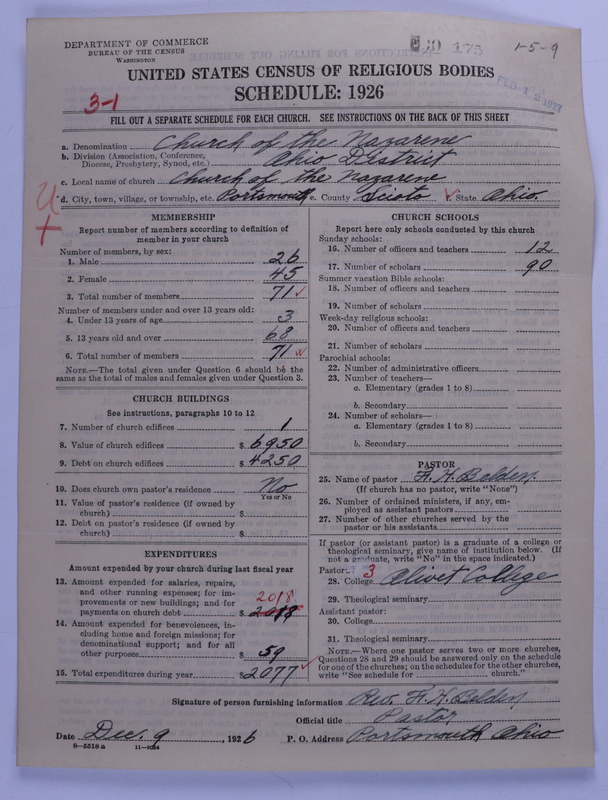 DEPARTMENT OF COMMERCE
BUREAU OF THE CENSUS
WASHINGTON
175
1-5-9
UNITED STATES CENSUS OF RELIGIOUS BODIES
SCHEDULE: 1926
FEB 12 1927
3-1
FILL OUT A SEPARATE SCHEDULE FOR EACH CHURCH. SEE INSTRUCTIONS ON THE BACK OF THIS SHEET
a. Denomination Church of the Nazarene
b. Division (Association, Conference, Diocese, Presbytery, Synod, etc.) Ohio District
c. Local name of church Church of the Nazarene
d. City, town, village, or township, etc. Portsmouth e. County Scioto f. State Ohio.
MEMBERSHIP
Report number of members according to definition of
member in your church
Number of members, by sex:
1. Male 26
2. Female 45
3. Total number of members 71
Number of members under and over 13 years old:
4. Under 13 years of age 3
5. 13 years old and over 68
6. Total number of members 71
NOTE.—The total given under Question 6 should be the
same as the total of males and females given under Question 3.
CHURCH BUILDINGS
See instructions, paragraphs 10 to 12
7. Number of church edifices 1
8. Value of church edifices $ 6950
9. Debt on church edifices $ 4250
10. Does church own pastor's residence No
Yes or No
11. Value of pastor's residence (if owned by
church) $
12. Debt on pastor's residence (if owned by
church) $
EXPENDITURES
Amount expended by your church during last fiscal year
13. Amount expended for salaries, repairs,
and other running expenses; for im-
provements or new buildings; and for
2018
payments on church debt $ 2018
14. Amount expended for benevolences, in-
cluding home and foreign missions; for
denominational support; and for all
other purposes $ 59
15. Total expenditures during year $ 2077
CHURCH SCHOOLS
Report here only schools conducted by this church
Sunday schools:
16. Number of officers and teachers 12
17. Number of scholars 90
Summer vacation Bible schools:
18. Number of officers and teachers
19. Number of scholars
Week-day religious schools:
20. Number of officers and teachers
21. Number of scholars
Parochial schools:
22. Number of administrative officers
23. Number of teachers—
a. Elementary (grades 1 to 8)
b. Secondary
24. Number of scholars—
a. Elementary (grades 1 to 8)
b. Secondary
PASTOR
25. Name of pastor H. H. Belden
(If church has no pastor, write "None")
26. Number of ordained ministers, if any, em-
ployed as assistant pastors
27. Number of other churches served by the
pastor or his assistants
If pastor (or assistant pastor) is a graduate of a college or
theological seminary, give name of institution below. (If
not a graduate, write "No" in the space indicated.)
Pastor: 3
28. College Olivet College
29. Theological seminary
Assistant pastor:
30. College
31. Theological seminary
NOTE.—Where one pastor serves two or more churches,
Questions 28 and 29 should be answered only on the schedule
for one of the churches; on the schedules for the other churches,
write "See schedule for church."
Signature of person furnishing information Rev. H. H. Belden
Official title Pastor
Date Dec. 9, 1926 P. O. Address Portsmouth Ohio
8-5518a 11-9024